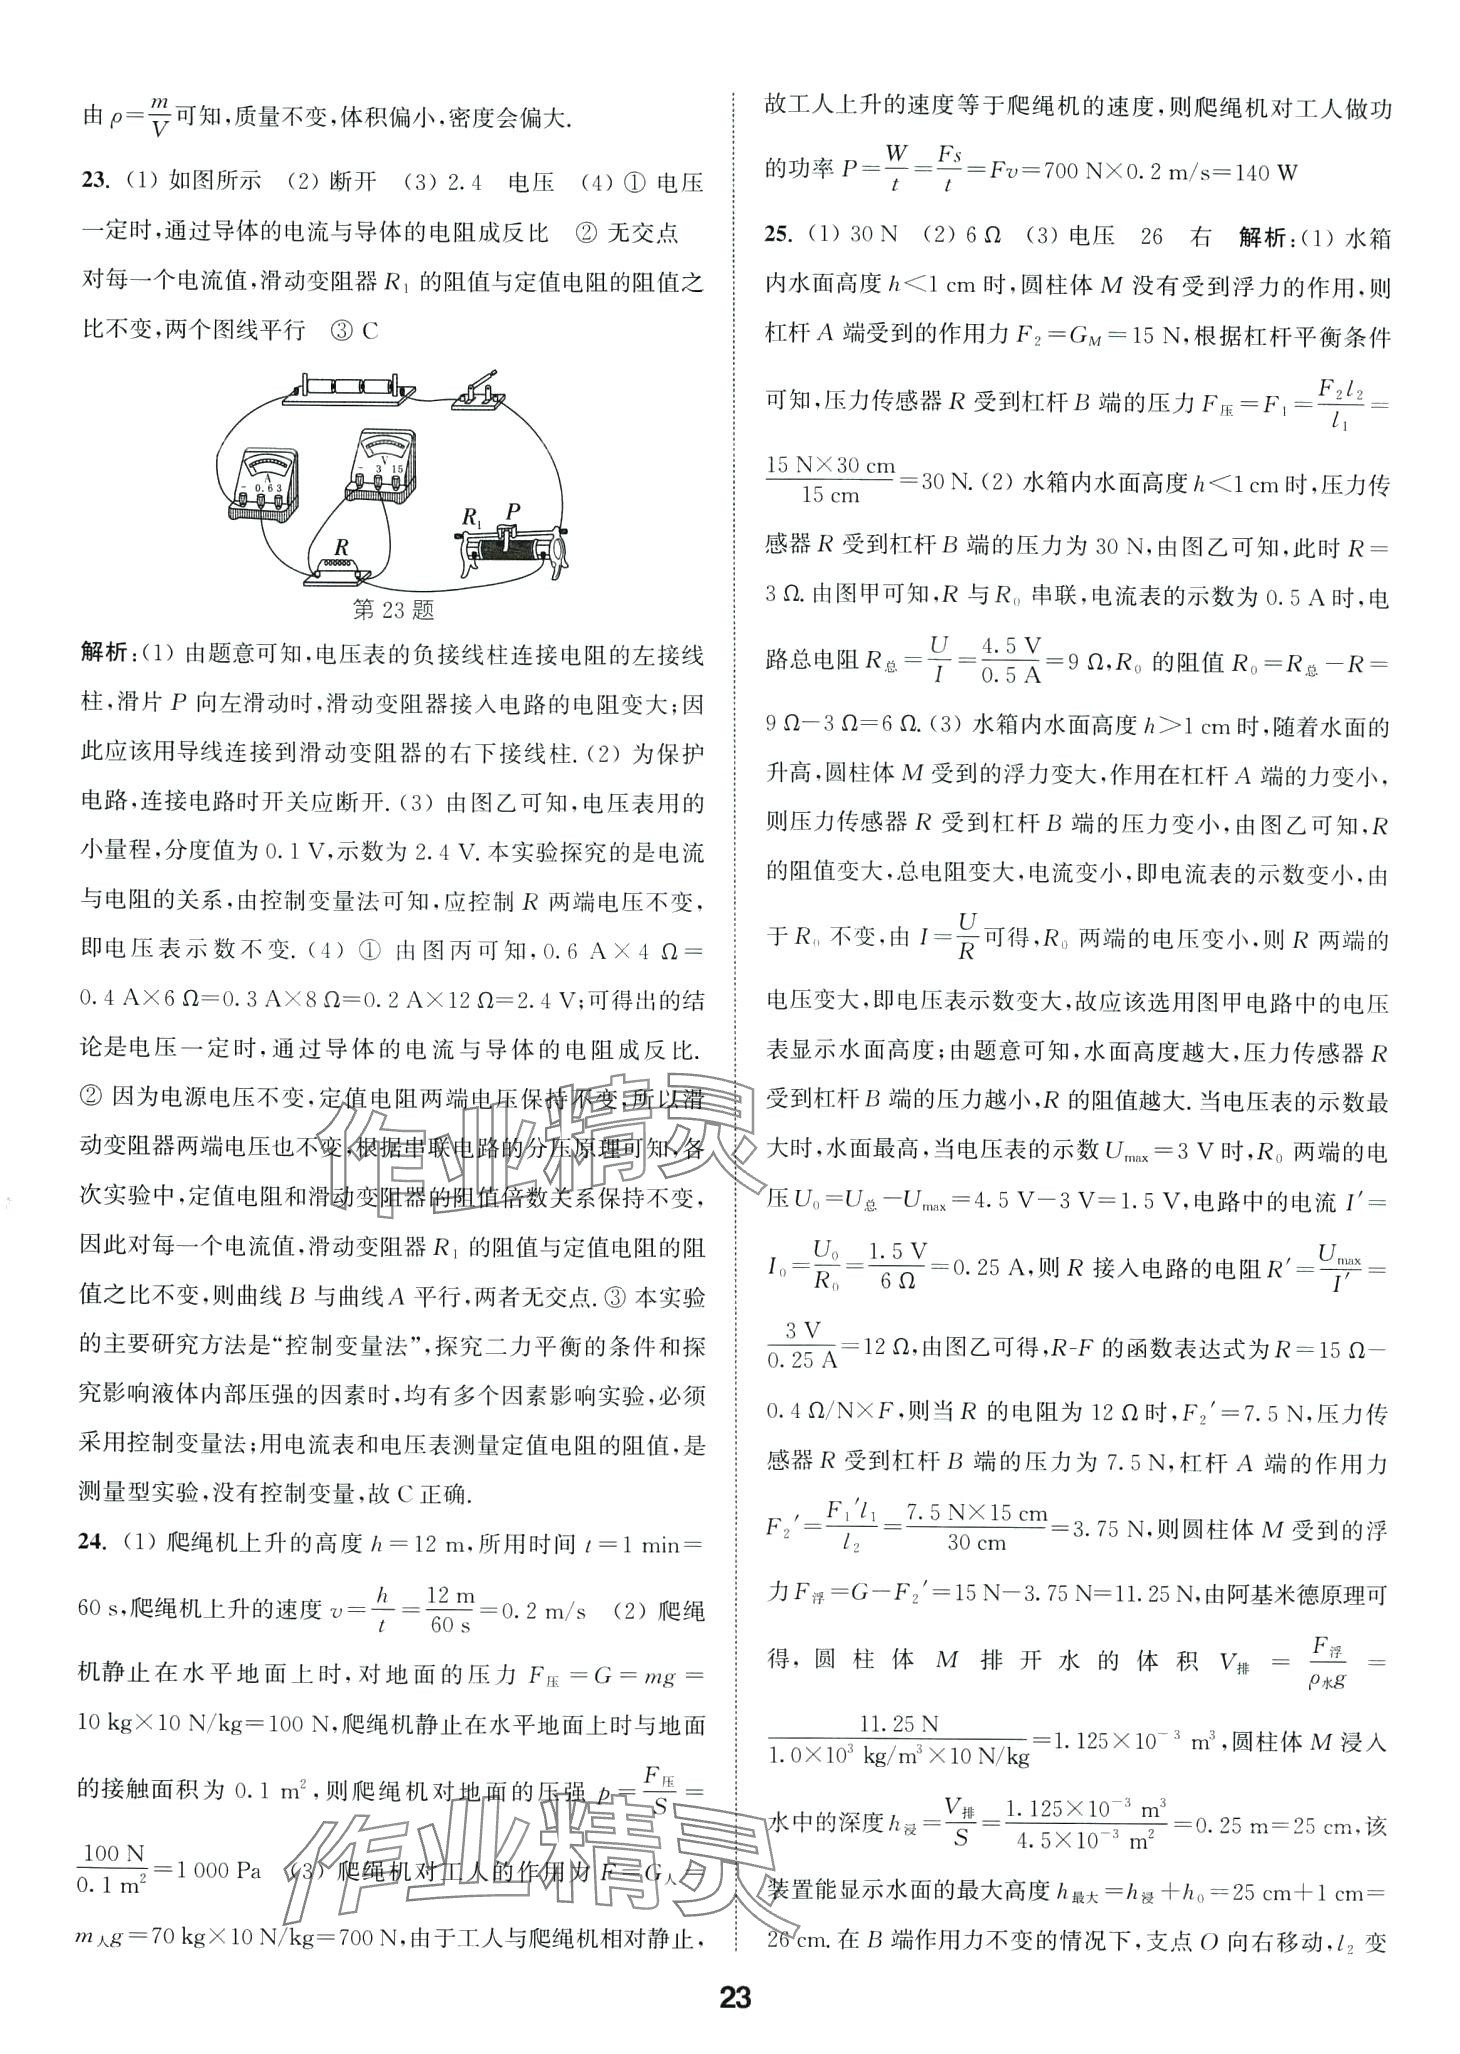 由 ρ=m/V 可知,质量不变,体积偏小,密度会偏大.
23. (1) 如图所示 (2) 断开 (3) 2.4 电压 (4) ① 电压
一定时,通过导体的电流与导体的电阻成反比 ② 无交点
对每一个电流值,滑动变阻器 R₁ 的阻值与定值电阻的阻值之
比不变,两个图线平行 ③ C
A
- 0.6 3
V
- 3 15
R
R₁ P
第 23 题
解析:(1) 由题意可知,电压表的负接线柱连接电阻的左接线
柱,滑片 P 向左滑动时,滑动变阻器接入电路的电阻变大;因
此应该用导线连接到滑动变阻器的右下接线柱. (2) 为保护
电路,连接电路时开关应断开. (3) 由图乙可知,电压表用的
小量程,分度值为 0.1 V,示数为 2.4 V. 本实验探究的是电流
与电阻的关系,由控制变量法可知,应控制 R 两端电压不变,
即电压表示数不变. (4) ① 由图丙可知,0.6 A×4 Ω=
0.4 A×6 Ω=0.3 A×8 Ω=0.2 A×12 Ω=2.4 V;可得出的结
论是电压一定时,通过导体的电流与导体的电阻成反比.
② 因为电源电压不变,定值电阻两端电压保持不变,所以滑
动变阻器两端电压也不变,根据串联电路的分压原理可知,各
次实验中,定值电阻和滑动变阻器的阻值倍数关系保持不变,
因此对每一个电流值,滑动变阻器 R₁ 的阻值与定值电阻的阻
值之比不变,则曲线 B 与曲线 A 平行,两者无交点. ③ 本实验
的主要研究方法是“控制变量法”,探究二力平衡的条件和探
究影响液体内部压强的因素时,均有多个因素影响实验,必须
采用控制变量法;用电流表和电压表测量定值电阻的阻值,是
测量型实验,没有控制变量,故 C 正确.
24. (1) 爬绳机上升的高度 h=12 m,所用时间 t=1 min=
60 s,爬绳机上升的速度 v=h/t=12 m/60 s=0.2 m/s (2) 爬绳
机静止在水平地面上时,对地面的压力 F压=G=mg=
10 kg×10 N/kg=100 N,爬绳机静止在水平地面上时与地面
的接触面积为 0.1 m²,则爬绳机对地面的压强 p=F压/S=
100 N/0.1 m²=1 000 Pa (3) 爬绳机对工人的作用力为 F=G人=
m人g=70 kg×10 N/kg=700 N,由于工人与爬绳机相对静止,
故工人上升的速度等于爬绳机的速度,则爬绳机对工人做功
的功率 P=W/t=Fs/t=Fv=700 N×0.2 m/s=140 W
25. (1) 30 N (2) 6 Ω (3) 电压 26 右 解析:(1) 水箱
内水面高度 h<1 cm 时,圆柱体 M 没有受到浮力的作用,则
杠杆 A 端受到的作用力 F₂=G_M=15 N,根据杠杆平衡条件
可知,压力传感器 R 受到杠杆 B 端的压力 F压=F₁=F₂l₂/l₁=
15 N×30 cm/15 cm=30 N. (2) 水箱内水面高度 h<1 cm 时,压力传
感器 R 受到杠杆 B 端的压力为 30 N,由图乙可知,此时 R=
3 Ω. 由图甲可知,R 与 R₀ 串联,电流表的示数为 0.5 A 时,电
路总电阻 R总=U/I=4.5 V/0.5 A=9 Ω,R₀ 的阻值 R₀=R总-R=
9 Ω-3 Ω=6 Ω. (3) 水箱内水面高度 h>1 cm 时,随着水面的
升高,圆柱体 M 受到的浮力变大,作用在杠杆 A 端的力变小,
则压力传感器 R 受到杠杆 B 端的压力变小,由图乙可知,R
的阻值变大,总电阻变大,电流变小,即电流表的示数变小,由
于 R₀ 不变,由 I=U/R 可得,R₀ 两端的电压变小,则 R 两端的
电压变大,即电压表示数变大,故应该选用图甲电路中的电压
表显示水面高度;由题意可知,水面高度越大,压力传感器 R
受到杠杆 B 端的压力越小,R 的阻值越大. 当电压表的示数最
大时,水面最高,当电压表的示数 Umax=3 V 时,R₀ 两端的电
压 U₀=U总-Umax=4.5 V-3 V=1.5 V,电路中的电流 I′=
I₀=U₀/R₀=1.5 V/6 Ω=0.25 A,则 R 接入电路的电阻 R′=Umax/I′=
3 V/0.25 A=12 Ω,由图乙可得,R-F 的函数表达式为 R=15 Ω-
0.4 Ω/N×F,则当 R 的电阻为 12 Ω 时,F₂′=7.5 N,压力传
感器 R 受到杠杆 B 端的压力为 7.5 N,杠杆 A 端的作用力
F₂′=F₁′l₁/l₂=7.5 N×15 cm/30 cm=3.75 N,则圆柱体 M 受到的浮
力 F浮=G-F₂′=15 N-3.75 N=11.25 N,由阿基米德原理可
得,圆柱体 M 排开水的体积 V排=F浮/ρ水g=
11.25 N/1.0×10³ kg/m³×10 N/kg=1.125×10⁻³ m³,圆柱体 M 浸入
水中的深度 h浸=V排/S=1.125×10⁻³ m³/4.5×10⁻³ m²=0.25 m=25 cm,该
装置能显示水面的最大高度 h最大=h浸+h₀=25 cm+1 cm=
26 cm. 在 B 端作用力不变的情况下,支点 O 向右移动,l₂ 变
作业精灵
作业精灵
23